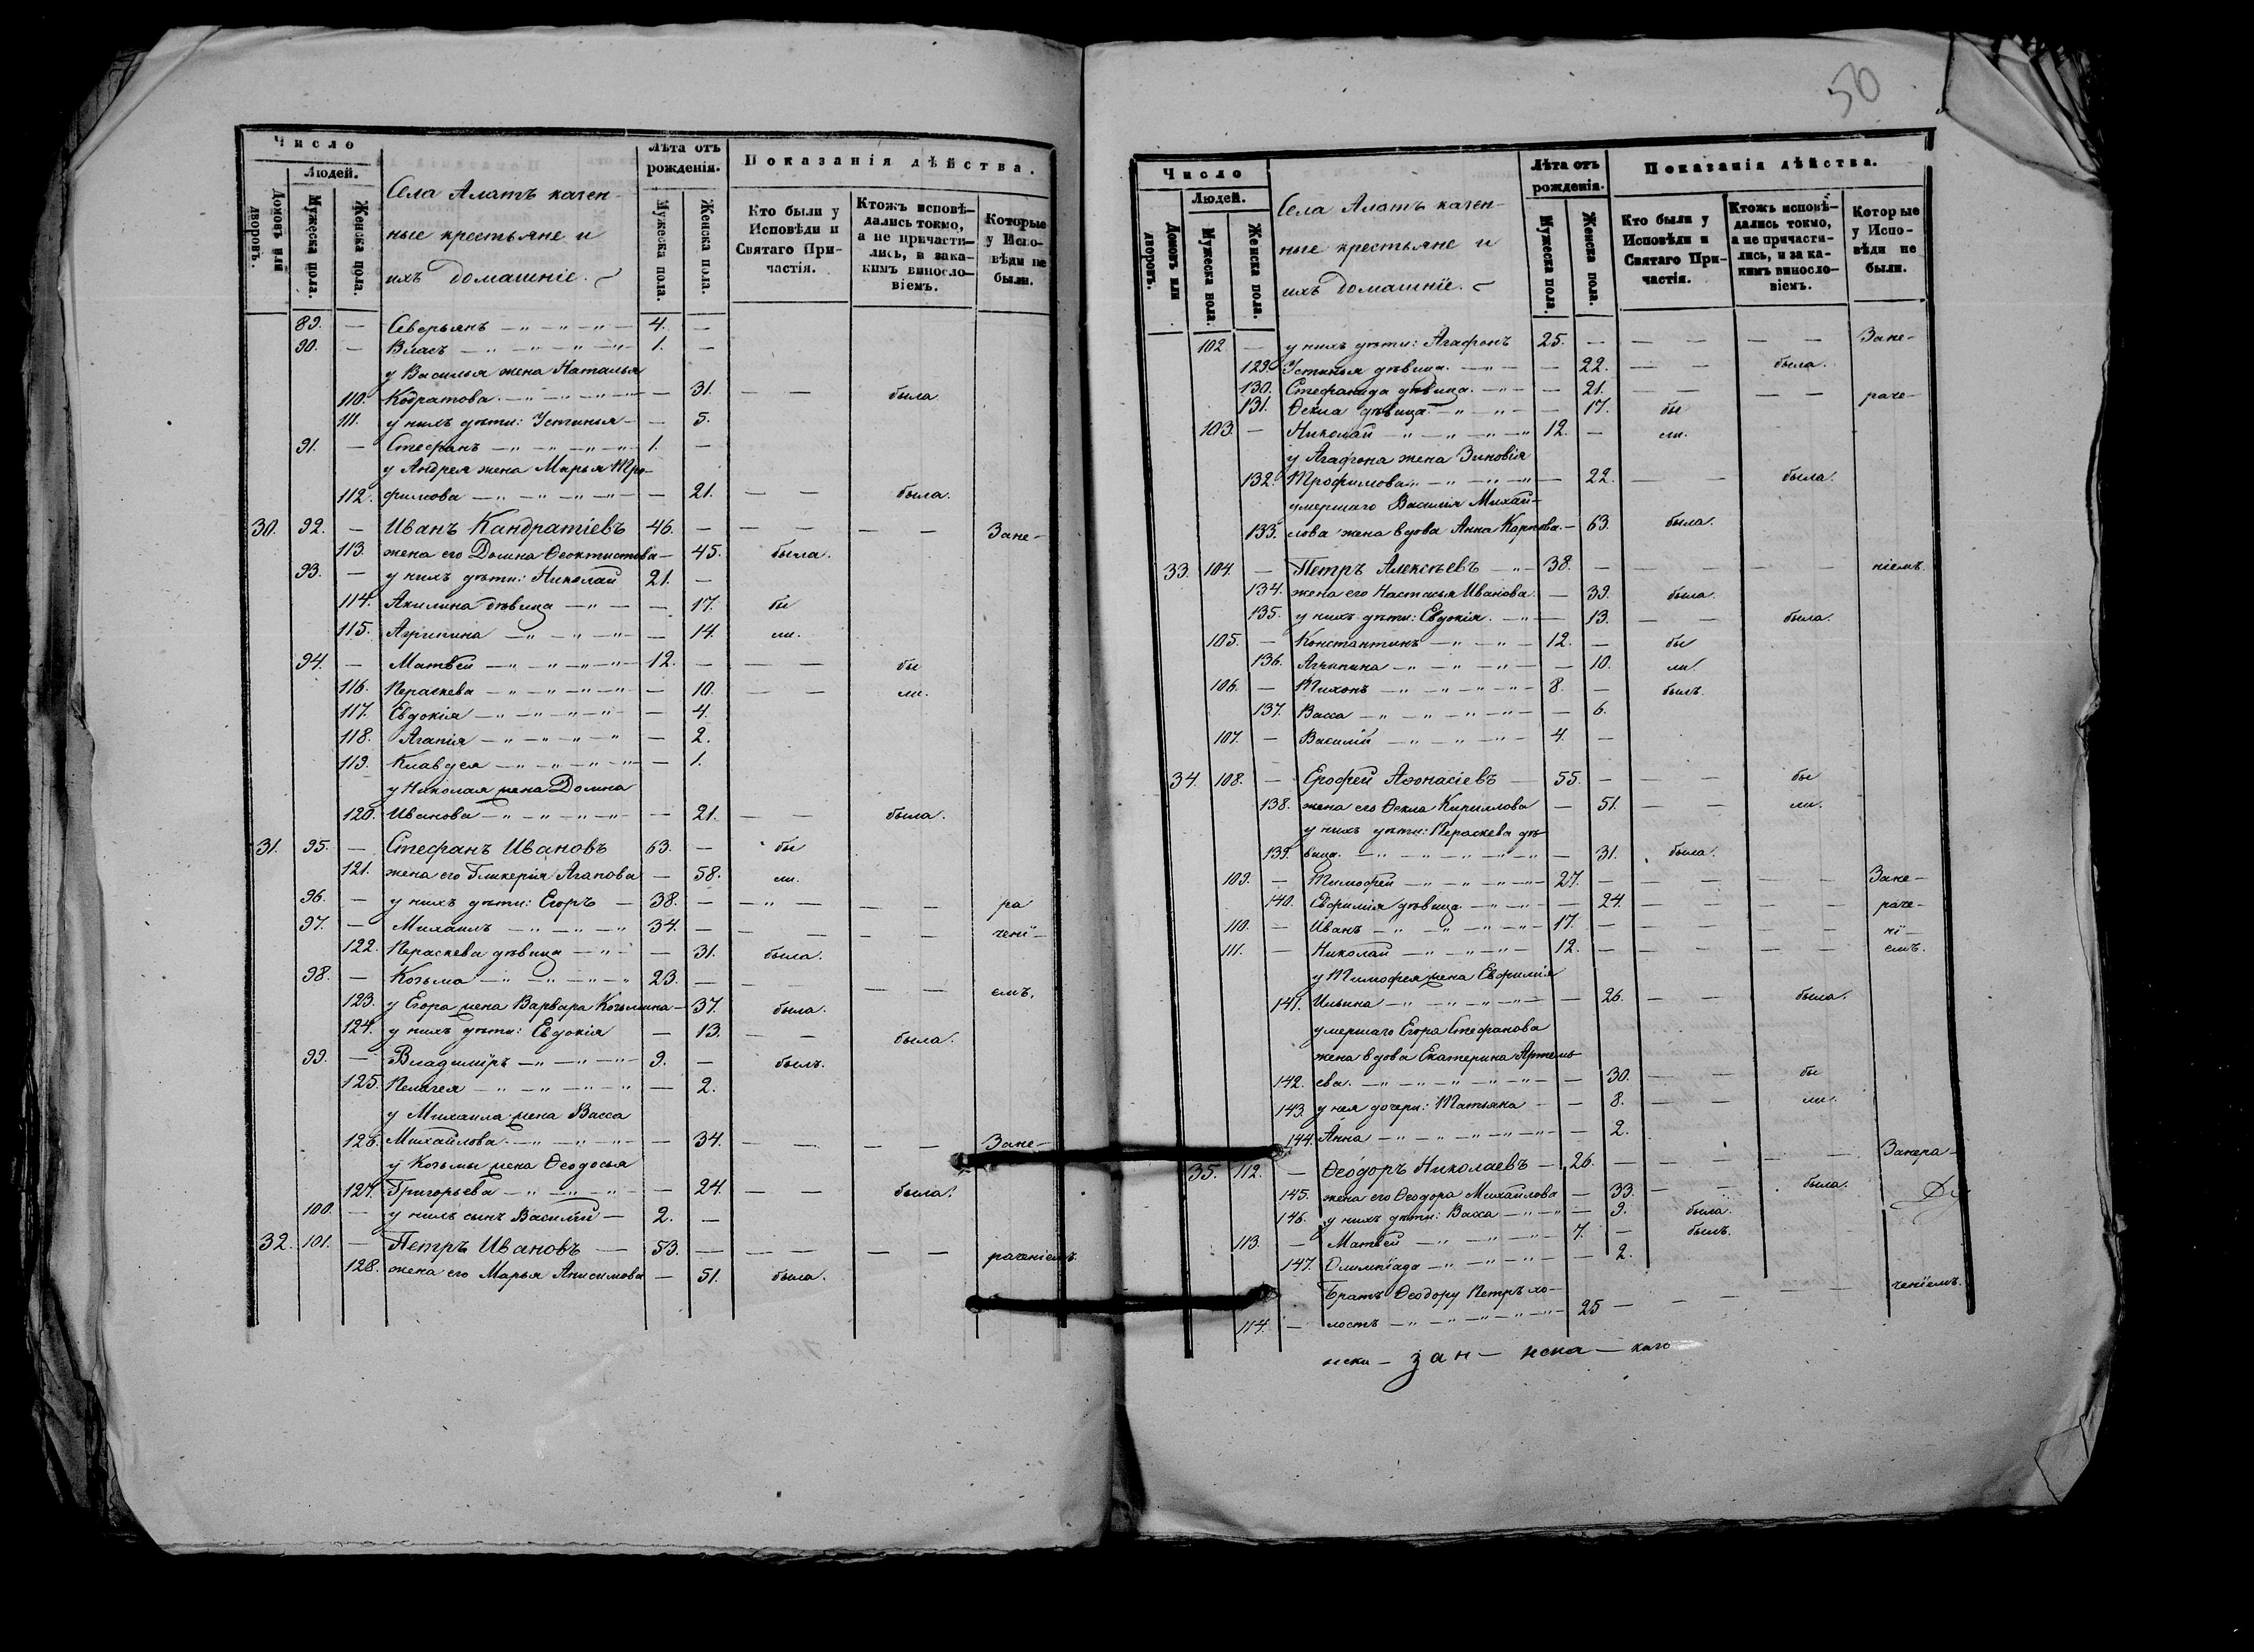 Число
Людей.
Домовъ или дворовъ.
Мужеска пола.
Женска пола.
Села Алатъ казен-
ные крестьяне и
ихъ домашніе.
Лѣта отъ рожденія.
Мужеска пола.
Женска пола.
Показанія дѣйства.
Кто были у Исповѣди и Святаго Причастія.
Ктожъ исповѣдались токмо, а не причастились, и за каким винословіемъ.
Которые у Исповѣди не были.
89. — Северьянъ — 4. —
90. — Власъ — 1. —
у Василья жена Наталья
110. Кодратова — — 31. — — была
111. у нихъ дѣти: Устинья — — 5.
91. — Стефанъ — 1. —
у Андрея жена Марья Тро-
112. фимова — — 21. — — была.
30. 92. — Иванъ Кандратіевъ 46. — — — — — Зане-
113. жена его Домна Феоктистова — 45. была.
93. — у нихъ дѣти: Николай 21. —
114. Акилина дѣвица — — 17. бы
115. Агрипина — — 14. ли.
94. — Матвей — 12. — — — бы
116. Пераскева — — 10. — — ли.
117. Евдокія — — 4.
118. Агапія — — 2.
119. Клавдея — — 1.
у Николая жена Домна
120. Иванова — — 21. — — была.
31. 95. — Стефанъ Ивановъ 63. — бы
121. жена его Гликерія Агапова — 58. ли.
96. — у нихъ дѣти: Егоръ — 38. — — — — — ра
97. — Михаилъ — 34. — — — — — чені-
122. Пераскева дѣвица — — 31. была.
98. — Козьма — 23. — — — — — емъ.
123. у Егора жена Варвара Козьмина — 37. была.
124. у нихъ дѣти: Евдокія — 13. — — была.
99. — Владимиръ — 9. — былъ.
125. Пелагея — — 2.
у Михаила жена Васса
126. Михайлова — — 34. — — — — Зане-
у Козьмы жена Феодосья
127. Григорьева — — 24. — — была.
100. — у нихъ сынъ Василій — 2. —
32. 101. — Петръ Ивановъ — 53. — — — — — раченіемъ.
128. жена его Марья Анисимова — 51. была.
50
Число
Людей.
Домовъ или дворовъ.
Мужеска пола.
Женска пола.
Села Алатъ казен-
ные крестьяне и
ихъ домашніе.
Лѣта отъ рожденія.
Мужеска пола.
Женска пола.
Показанія дѣйства.
Кто были у Исповѣди и Святаго Причастія.
Ктожъ исповѣдались токмо, а не причастились, и за каким винословіемъ.
Которые у Исповѣди не были.
102 — у нихъ дѣти: Агафонъ 25. — — — — — Зане-
129. Устинья дѣвица. — — 22. — — была.
130. Стефанида дѣвица. — — 21. — — — — раче-
131. Фекла дѣвица — — 17. бы
103. — Николай — 12. — ли.
у Агафона жена Зиновія
132. Трофимова — — 22. — — была.
умершаго Василія Михай-
133. лова жена вдова Анна Карпова — 63. была.
33. 104. — Петръ Алексѣевъ — 38. — — — — — ніемъ.
134. жена его Настасья Иванова — 39. была.
135. у нихъ дѣти: Евдокія. — — 13. — — была.
105. — Константинъ — 12. — бы
136. Агрипина — — 10. ли.
106. — Тихонъ — 8. — былъ.
137. Васса — — 6.
107. — Василій — 4. —
34. 108. — Ерофей Афонасіевъ — 55. — — — бы
138. жена его Фекла Кириллова — 51. — — ли.
у нихъ дѣти: Пераскева дѣ-
139. вица. — — 31. была.
109. — Тимофей — 27. — — — — — Зане-
140. Евфимія дѣвица — — 24. — — — — раче-
110. — Иванъ — 17. — — — — — ні-
111. — Николай — 12. — — — — — емъ.
у Тимофея жена Евфимія
141. Ильина — — 26. — — была.
умершаго Егора Стефанова
жена вдова Екатерина Артемь-
142. ева. — — 30. — — бы
143. у нея дочери: Татьяна — — 8. — — ли.
144. Анна — — 2.
35. 112. — Феодоръ Николаевъ — 26. — — — — — Занера-
145. жена его Феодора Михайлова — 33. — — была.
146. у нихъ дѣти: Васса — — 9. была.
113. — Матвей — 7. — былъ.
147. Олимпіада — — 2.
Братъ Феодору Петръ хо-
114. — лостъ — 25 — — — — — ченіемъ.